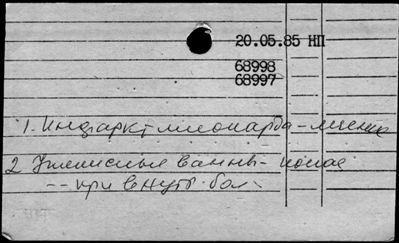 20.05.85 НП
68998
68997
1. Инфаркт миокарда - лечение
2 Углекислые ванны - показ
-- при внутр. бол